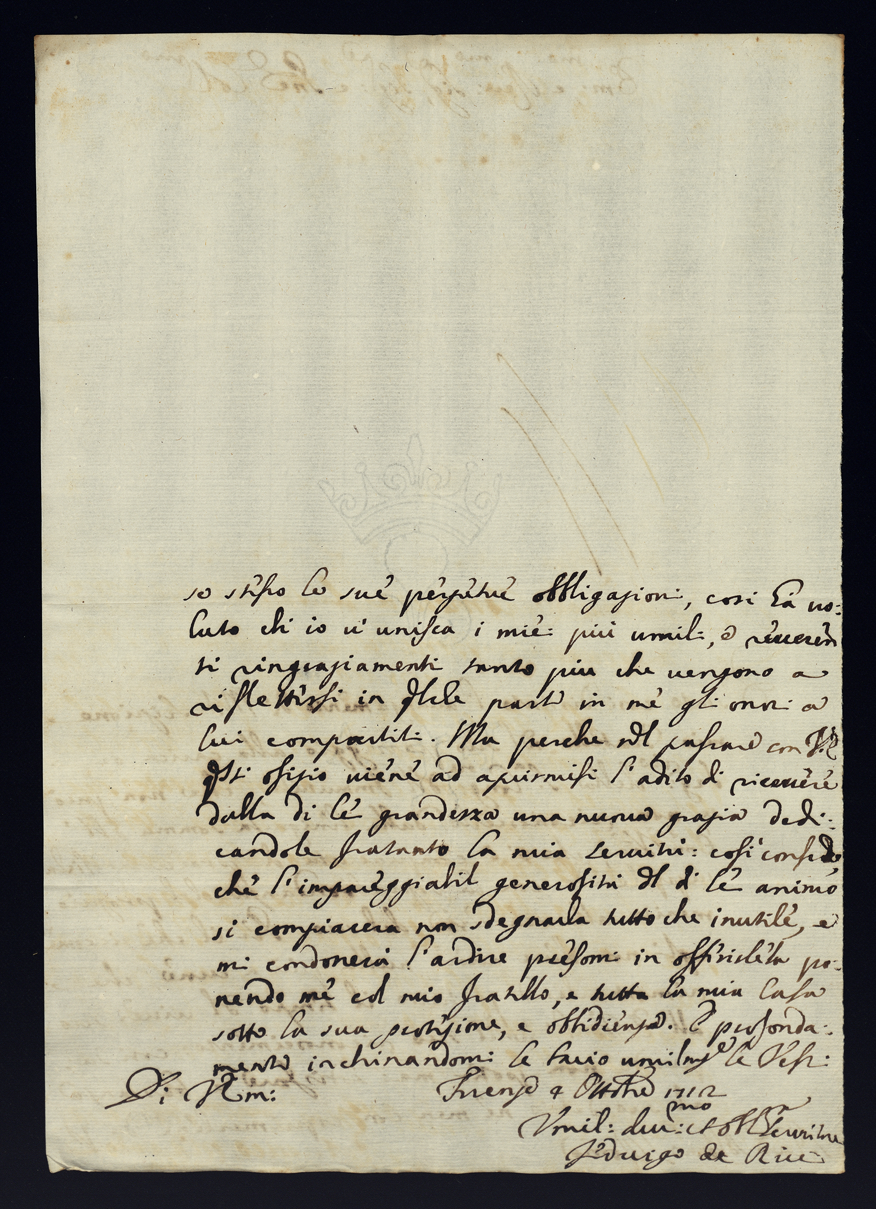 so stesso le sue perpetue obbligazion:, cosi hà uo:
luto chi io ui unisca i mie: più umil:, e reueren
ti ringraziamenti tanto piu che uengono a
riflettersi in qlche parte in me gli onor: a
lui compartiti. Ma perche nel passare con V.E.
qsti ofizio uiene ad aprirmisi l'adito di riceuere
dalla di lè grandezza una nuoua grazia dedi:
candole fratanto la mia seruitù: cosi confido
che l'impareggiabil generosità dl di lè animo
si compiacerà non sdegnarla tutto che inutile, e
mi condonerà l'ardire presom: in offerirlela po:
nendo me col mio fratello, e tutta la mia Casa
sotto la sua protezione, e obbidienza. E profonda:
mente inchinandom: le facio umilmte le Vest:
Di VEm: Firenze 4 Ottbre 1712
Vmil: diu:mo et obbl:mo Seruitore